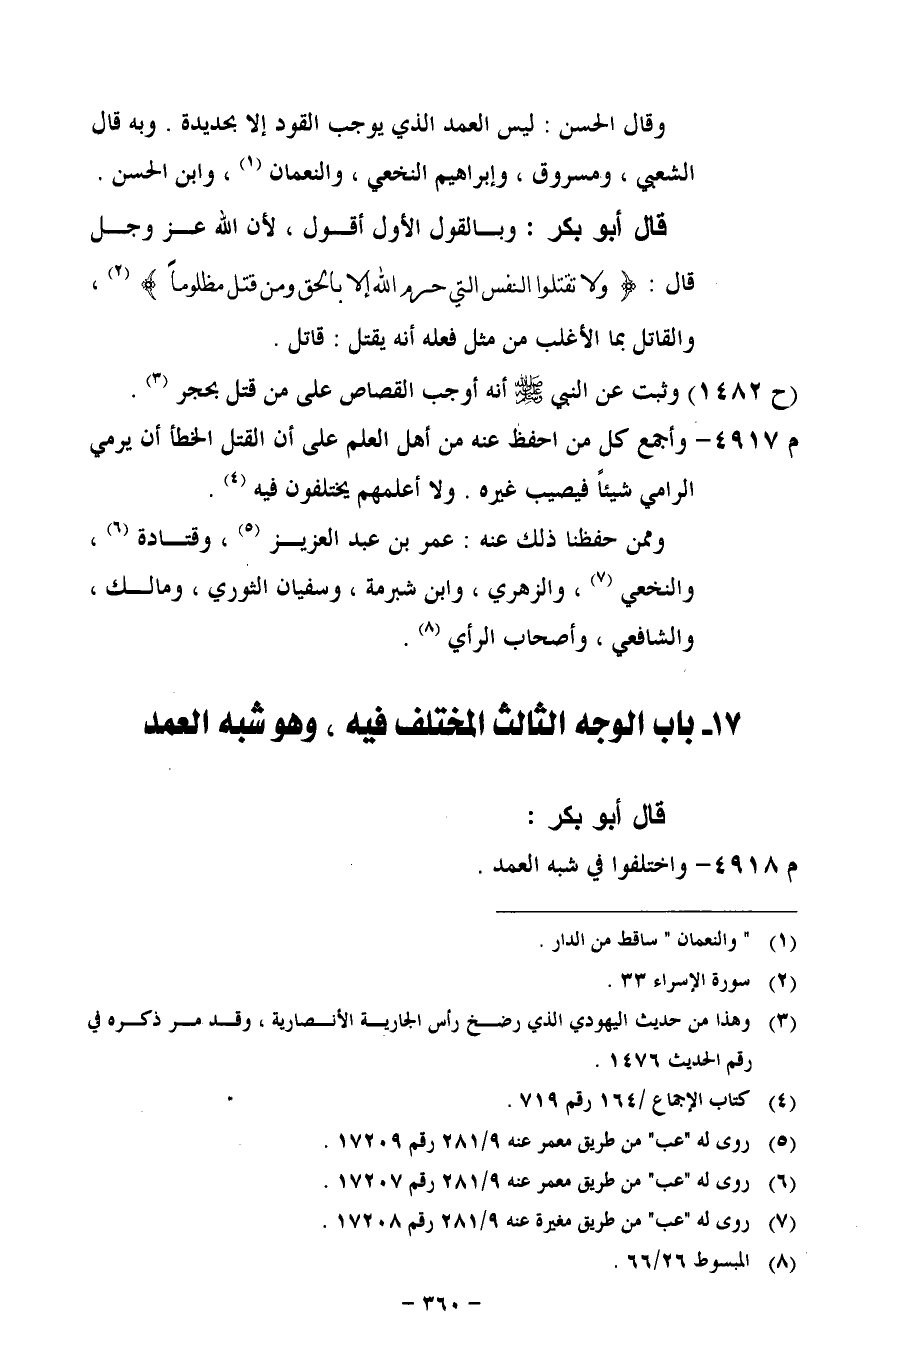 وقال الحسن : ليس العمد الذي يوجب القود إلا بحديدة . وبه قال
الشعبي ، ومسروق ، وإبراهيم النخعي ، والنعمان (١) ، وابن الحسن .
قال أبو بكر : وبـالقول الأول أقـول ، لأن الله عـز وجـل
قال : ﴿ ولا تقتلوا النفس التي حرم الله إلا بالحق ومن قتل مظلوماً ﴾ (٢) ،
والقاتل بما الأغلب من مثل فعله أنه يقتل : قاتل .
(ح ١٤٨٢) وثبت عن النبي ﷺ أنه أوجب القصاص على من قتل بحجر (٣) .
م ٤٩١٧- وأجمع كل من احفظ عنه من أهل العلم على أن القتل الخطأ أن يرمي
الرامي شيئاً فيصيب غيره . ولا أعلمهم يختلفون فيه (٤) .
وممن حفظنا ذلك عنه : عمر بن عبد العزيـز (٥) ، وقتـادة (٦) ،
والنخعي (٧) ، والزهري ، وابن شبرمة ، وسفيان الثوري ، ومالـك ،
والشافعي ، وأصحاب الرأي (٨) .
١٧ـ باب الوجه الثالث المختلف فيه ، وهو شبه العمد
قال أبو بكر :
م ٤٩١٨- واختلفوا في شبه العمد .
(١) " والنعمان " ساقط من الدار .
(٢) سورة الإسراء ٣٣ .
(٣) وهذا من حديث اليهودي الذي رضـخ رأس الجاريـة الأنـصارية ، وقـد مـر ذكـره في
رقم الحديث ١٤٧٦ .
(٤) كتاب الإجماع /١٦٤ رقم ٧١٩ .
(٥) روى له "عب" من طريق معمر عنه ٢٨١/٩ رقم ١٧٢٠٩ .
(٦) روى له "عب" من طريق معمر عنه ٢٨١/٩ رقم ١٧٢٠٧ .
(٧) روى له "عب" من طريق مغيرة عنه ٢٨١/٩ رقم ١٧٢٠٨ .
(٨) المبسوط ٦٦/٢٦ .
- ٣٦٠ -